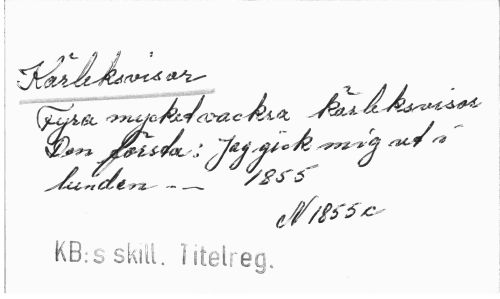 Kärleksvisor
Fyra mycket vackra kärleksvisor
Den första: Jag gick mig ut i
lunden -- 1855
N 1855 c
KB:s skill. Titelreg.